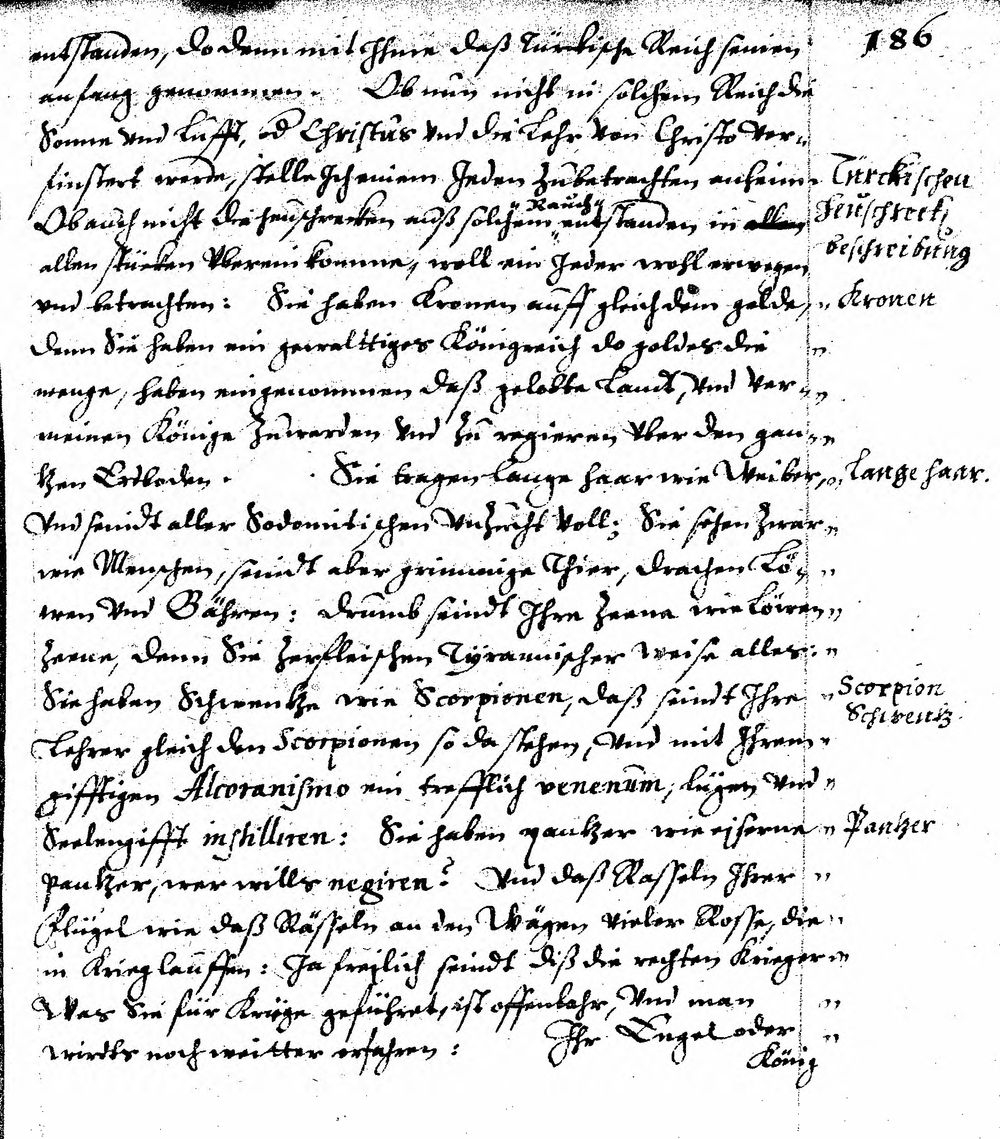 186
entstanden, do denn mit Ihme daß Türckische Reich seinen
anfang genommen. Ob nun nicht in solchem Reich die
Sonne vnd Lufft, od Christus vnd die Lehr von Christo ver-
finstert werde, stelle Ich einem Jeden zubetrachten anheim
Türckischen
Ob auch nicht die heuschrecken auß solchem entstanden in allen
Rauch
Heuschreck
allen stücken vberein komme, woll ein Jeder wohl erwegen
beschreibung
vnd betrachten: Sie haben Kronen auff gleich dem golde,
Kronen
denn Sie haben ein gewalttiges Königreich do goldes die
menge, haben eingenommen daß gelobte Landt, vnd ver-
meinen Könige zuwerden vnd zu regieren vber den gan-
tzen Erdboden. Sie tragen lange haar wie Weiber,
lange haar.
vnd seindt aller Sodomitischen vnzucht voll; Sie sehen zwar
wie Menschen, seindt aber grimmige Thier, drachen Lö-
wen vnd Bähren: drumb seindt Ihre Zeene wie Löwen
Zeene, denn Sie zerfleischen Tÿrannischer weise alles.
Sie haben Schwentze wie Scorpionen, daß seindt Ihre
Scorpion
Schwentz
Lehrer gleich den Scorpionen so da stehen, vnd mit Ihrem
gifftigen Alcoranismo ein trefflich venenum, lügen vnd
Seelengifft instilliren: Sie haben pantzer wie eiserne
Pantzer
pantzer, wer wills negiren? Vnd daß Rasseln Ihrer
Flügel wie daß Rässeln an den Wägen vieler Rosse, die
in Krieg lauffen: Ja freilich seindt diß die rechten Krieger
Was Sie für Kriege geführet, ist offenbahr, Vnd man
wirdts noch weitter erfahren: Ihr Engel oder
König